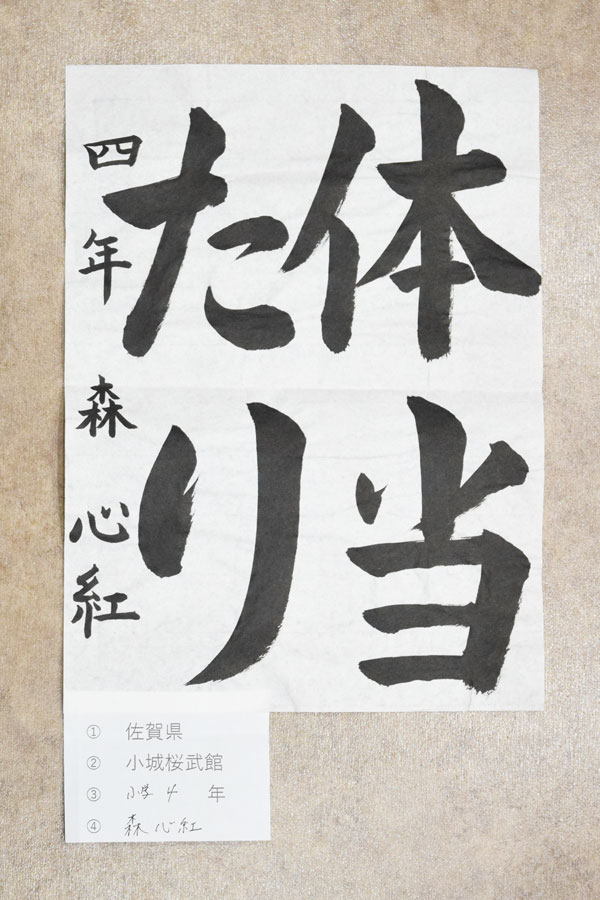 体当
たり
四年 森 心紅
① 佐賀県
② 小城桜武館
③ 小学 4 年
④ 森 心紅